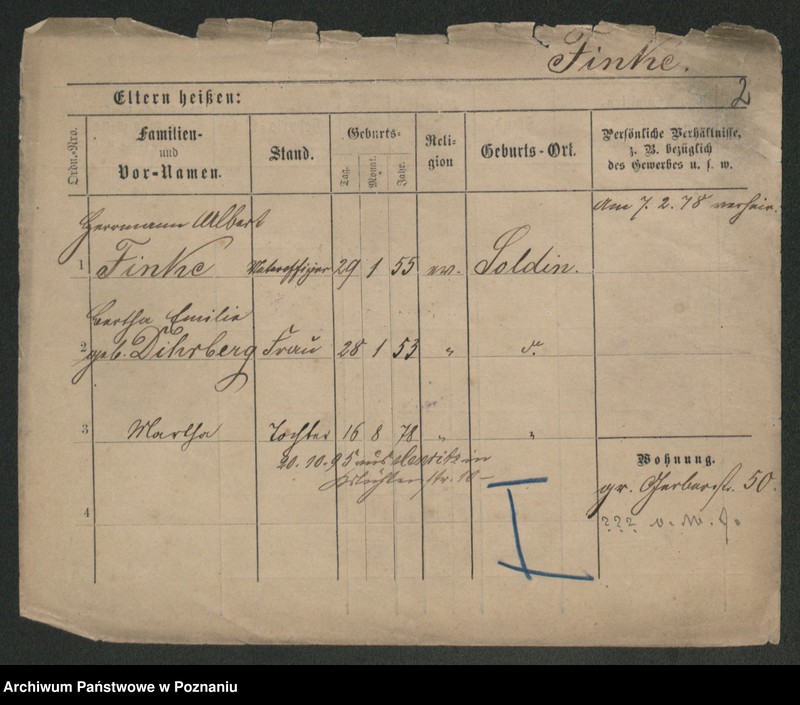 Finke.
2
Eltern heißen:
Ordn.-Nro.
Familien-
und
Vor-Namen.
Stand.
Geburts-
Tag.
Monat.
Jahr.
Reli-
gion
Geburts-Ort.
Persönliche Verhältnisse,
z. B. bezüglich
des Gewerbes u. s. w.
Am 7. 2. 78 verheir.
Herrmann Albert
1 Finke Unteroffizier 29 1 55 ev. Soldin.
Bertha Emilie
2 geb. Dihrberg Frau 28 1 53 " d.
3 Martha Tochter 16 8 78 " "
20. 10. 95 aus in
str. 10-
Wohnung.
gr. Gerberstr. 50.
4
??? v. W. f.
I
Archiwum Państwowe w Poznaniu